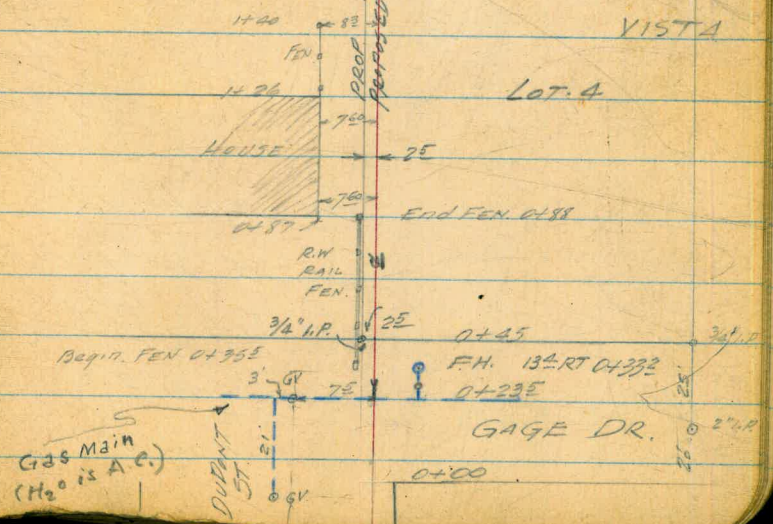 1+40
8 3
VISTA
FEN
PROP
PROPOSED
1+26
LOT. 4
7 60
HOUSE
2 5
7 60
End FEN. 0+88
0+87
R.W
RAIL
FEN.
3/4" I.P.
2 5
0+45
3/4" I.P.
Begin. FEN 0+35 5
F.H. 13 4 RT 0+33 2
3'
GV
7 5
0+23 5
25'
GAGE DR.
2" I.P.
26'
Gas Main
(H2O is A.C.)
DUPONT ST
21'
GV.
0+00